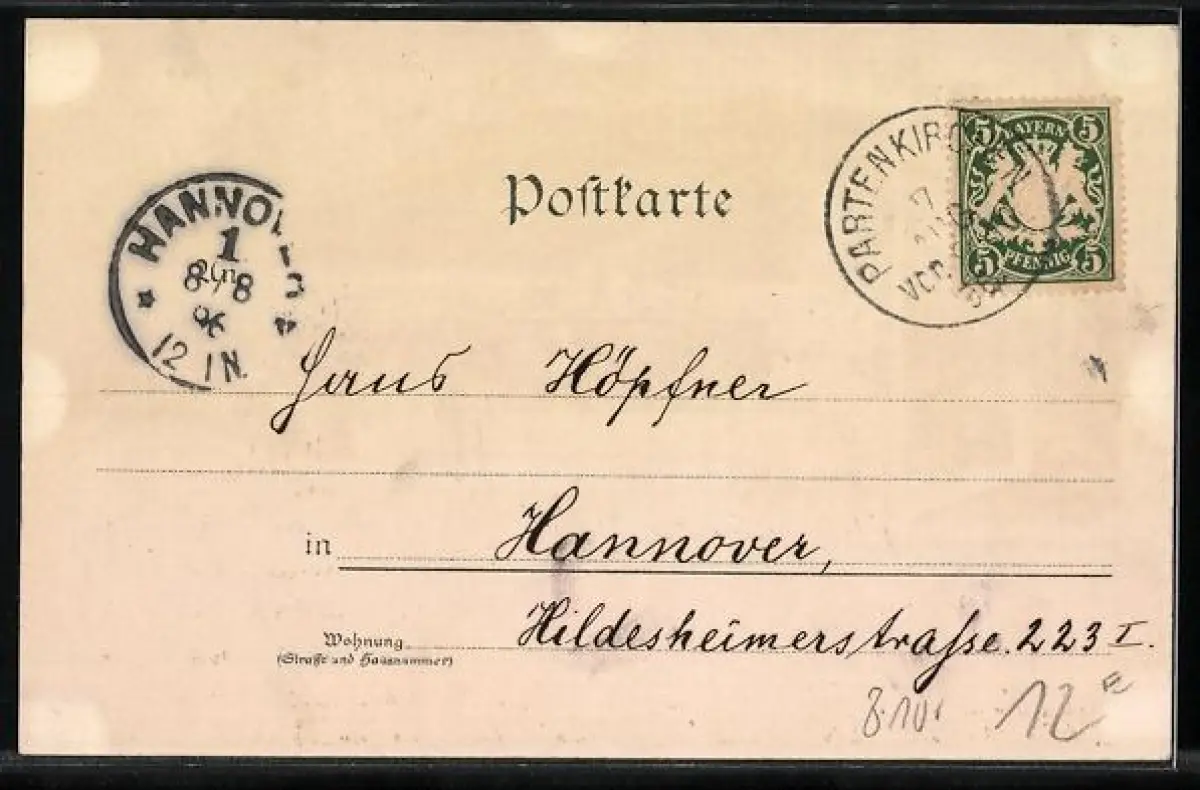 Postkarte
5 BAYERN 5
5 PFENNIG 5
PARTENKIRCHEN
VOR.
HANNOVER
1
8/8
96
12 N.
Hans Höpfner
in Hannover,
Wohnung
(Straße und Hausnummer)
Hildesheimerstrasse. 223 I.
8.10
12